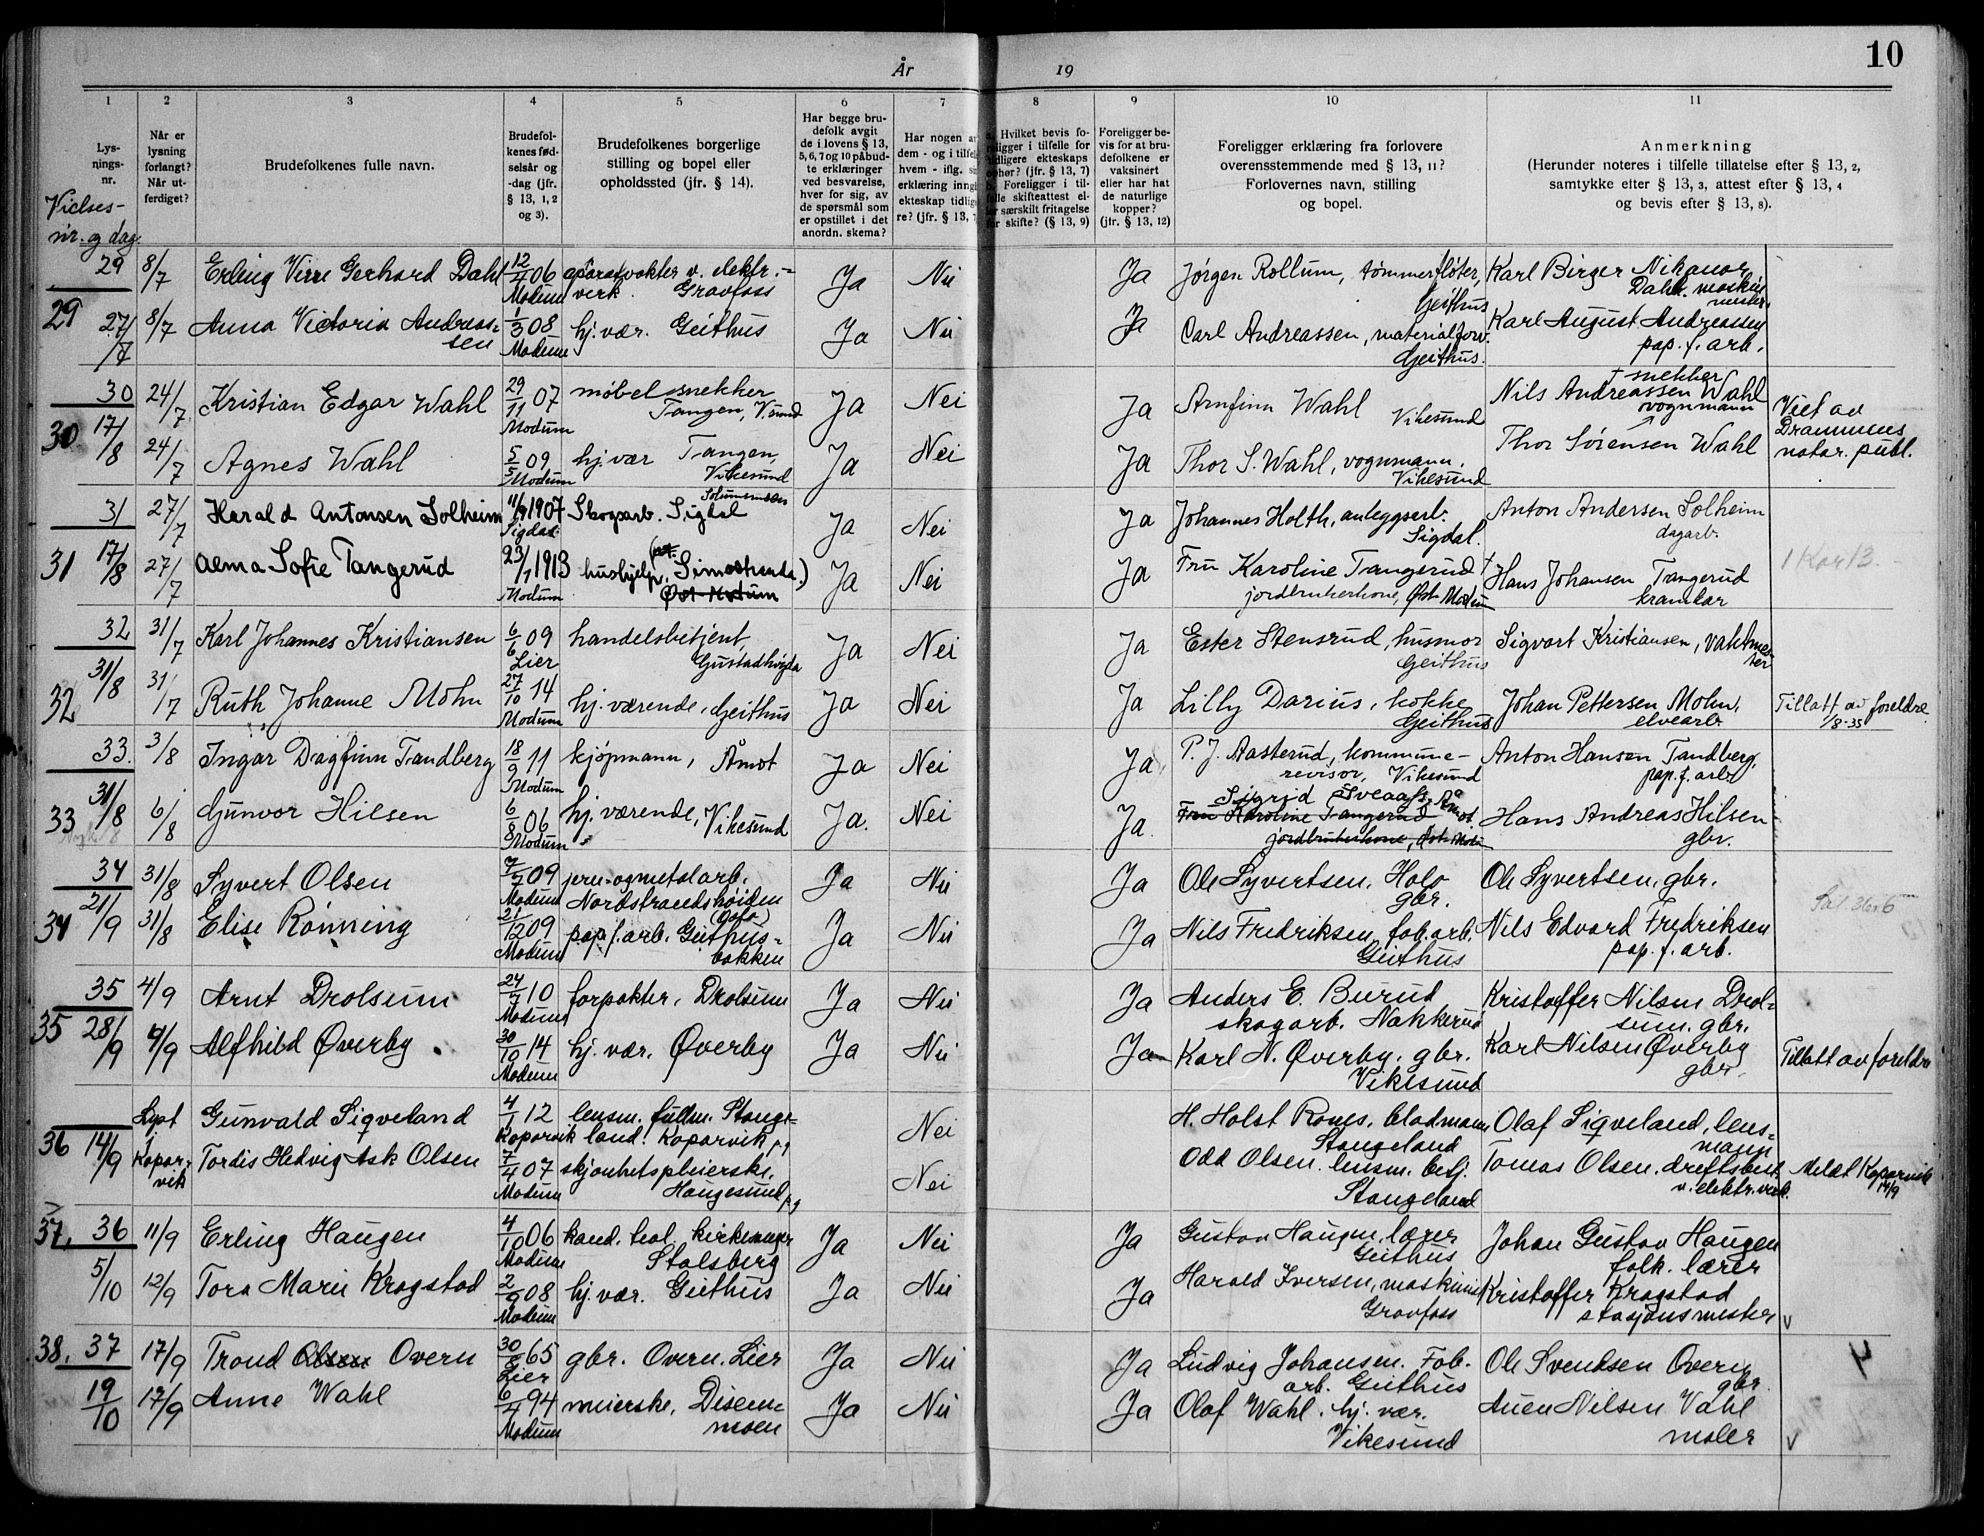 10
År 19
1 2 3 4 5 6 7 8 9 10 11
Lys-
nings-
nr.
Vielses-
nr. og dag.
Når er
lysning
forlangt?
Når ut-
ferdiget?
Brudefolkenes fulle navn.
Brudefol-
kenes fød-
selsår og
-dag (jfr.
§ 13, 1, 2
og 3).
Brudefolkenes borgerlige
stilling og bopel eller
opholdssted (jfr. § 14).
Har begge bru-
defolk avgit
de i lovens § 13,
5, 6, 7 og 10 påbud-
te erklæringer
ved besvarelse,
hver for sig, av
de spørsmål som
er opstillet i det
anordn. skema?
Har nogen av
dem - og i tilfelle
hvem - iflg. sin
erklæring inngå
ekteskap tidlige
re? (jfr. § 13, 7
a. Hvilket bevis fo-
religger i tilfelle for
tidligere ekteskaps
ophør? (jfr. § 13, 7)
b. Foreligger i til-
felle skifteattest el-
ler særskilt fritagelse
for skifte? (§ 13, 9)
Foreligger be-
vis for at bru-
defolkene er
vaksinert
eller har hat
de naturlige
kopper?
(jfr. § 13, 12)
Foreligger erklæring fra forlovere
overensstemmende med § 13, 11?
Forlovernes navn, stilling
og bopel.
Anmerkning
(Herunder noteres i tilfelle tillatelse efter § 13, 2,
samtykke efter § 13, 3, attest efter § 13, 4
og bevis efter § 13, 8).
29 8/7 Erling Virre Gerhard Dahl 12/4 06 Modum aparatvakter v. elektr.-
verk. Gravfoss Ja Nei Ja Jørgen Rollum, tømmerfløter,
Geithus Karl Birger Nikanor
Dahl. maskin
mester.
29 27/7 8/7 Anna Victoria Andreas-
sen 1/3 08 Modum hj. vær. Geithus Ja Nei Ja Carl Andreassen, materialforv.
Geithus. Karl August Andreassen
pap. f. arb.
30 24/7 Kristian Edgar Wahl 29/11 07 Modum møbelsnekker
Tangen, V.sund Ja Nei Ja Arnfinn Wahl Vikesund Nils Andreassen Wahl
† snekker
30 17/8 24/7 Agnes Wahl 5/5 09 Modum hj. vær Tangen,
Vikesund Ja Nei Ja Thor S. Wahl, vognmann,
Vikesund Thor Sørensen Wahl
vognmann
Viet av
Drammens
notar. publ.
31 27/7 Harald Antonsen Solheim 11/9 1907 Sigdal Skogsarb. Sigdal
Ja Nei Ja Johannes Holth, anleggsarb.
Sigdal. Anton Andersen Solheim
dagarb.
31 17/8 27/7 Alma Sofie Tangerud 23/1 1913 Modum hushjelp, Simostranda.)
Øst-Modum Ja Nei Ja Fru Karoline Tangerud
jordbrukerkone, Øst-Modum † Hans Johansen Tangerud
kramkar
1 Kor 13.
32 31/7 Karl Johannes Kristiansen 6/6 09 Lier handelsbetjent,
Gustadhøgda Ja Nei Ja Ester Stensrud, husmor
Geithus Sigvart Kristiansen, vaktmes-
ter
32 31/8 31/7 Ruth Johanne Mohn 27/10 14 Modum hj. værende, Geithus Ja Nei Ja Lilly Darius, kokke
Geithus Johan Pettersen Mohn,
elvearb. Tillatt av foreldre
1/8-35
33. 3/8 Ingar Dagfinn Tandberg 18/9 11 Modum kjøpmann, Åmot Ja Nei Ja P. J. Aasterud, kommune-
revisor, Vikesund Anton Hansen Tandberg,
pap. f. arb.
33 31/8 6/8 Gunvor Hilsen 6/8 06 Modum hj. værende, Vikesund Ja. Nei Ja. Sigrid Sveaass, Åmot
Fru Karoline Tangerud
jordbrukerkone, Øst-Modum Hans Andreas Hilsen
gbr.
34 31/8 Syvert Olsen 7/7 09 Modum jern-og metalarb.
Nordstrandshøiden
(Oslo) Ja Nei Ja Ole Syvertsen. Holo
gbr. Ole Syvertsen, gbr.
34 21/9 31/8 Elise Rønning 21/12 09 Modum pap. f. arb. Geithus-
bakken Ja Nei Ja Nils Fredriksen, fab. arb.
Geithus Nils Edvard Fredriksen
pap. f. arb.
35 4/9 Arnt Drolsum 24/7 10 Modum forpakter, Drolsum Ja Nei Ja Anders E. Burud
skogarb. Nakkerud Kristoffer Nilsen Drol-
sum. gbr.
35 28/9 4/9 Alfhild Øverby 30/10 14 Modum hj. vær. Øverby Ja Nei Ja Karl N. Øverby, gbr.
Vikesund Karl Nilsen Øverby
gbr. Tillatt av foreldre
36 14/9 Lyst
i
Kopar-
vik Gunvald Sigveland 4/1 12 Koparvik lensm. fullm. Stange-
land. Koparvik p.g Nei H. Holst Rones, bladmann
Stangeland Olaf Sigveland, lens-
mann
Tordis Hedvig Ask Olsen 7/4 07 Modum skjønhetspleierske,
Haugesund p.g Nei Odd Olsen. lensm. betj.
Stangeland Tomas Olsen. driftsbest.
v. elektr. verk. Meldt Koparvik
14/9
37, 36 11/9 Erling Haugen 4/10 06 Modum kand. teol. kirkesanger
Stalsberg Ja Nei Ja Gustav Haugen. lærer
Geithus Johan Gustav Haugen
folk. lærer
5/10 12/9 Tora Marie Kragstad 2/9 08 Modum hj. vær. Geithus Ja Nei Ja Harald Iversen, maskinist
Gravfoss Kristoffer Kragstad
stasjonsmester
38. 37 17/9 Trond Olsen Overn 30/5 65 Lier gbr. Overn. Lier Ja Nei Ja Ludvig Johansen. Fab.
arb. Geithus Ole Svendsen Overn
gbr.
19/10 17/9 Anne Wahl 6/4 94 Modum meierske, Disen-
moen Ja Nei Ja Olaf Wahl. hj. vær.
Vikesund Auen Nilsen Wahl
maler